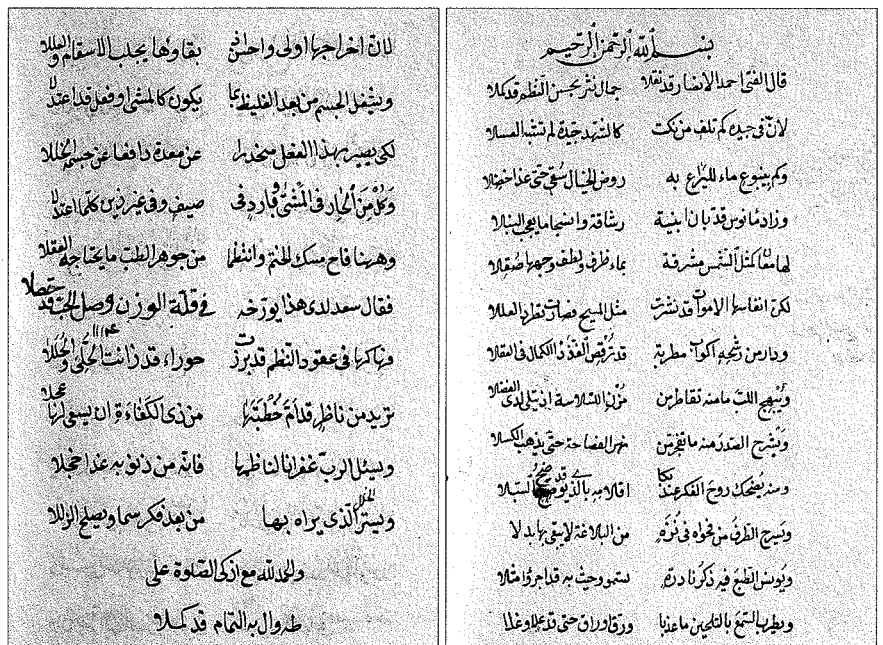 بسم الله الرحمن الرحيم
قال الفتى احمد الانضار قد نقلا جمال نثر بحسن النظم قد كملا
لان في جيده كم تلف من نكت كالشهد جيدة لم تشبه العسلا
وكم ينبوع ماء لليراع به روض الخيال سقي حتى غدا خضلا
وزاد مانوس قد بان ابنية رشاقة وانسجاما يعجب النبلا
لها معان كمثل الشمس مشرقة بماء ظرف ولطف وجهها صقلا
لكن انفاسها الاموات قد نشرت مثل المسيح فصارت تطرد العللا
ودار من اكواب مطربة قد ترقص الكمال في العقلا
ويبهج اللب ما منه تقاطر من مزن السلاسة اذ يتلى لدى الفضلا
ويشرح الصدر منه ما تفجر من نهر الفصاحة حتى يذهب الكسلا
ومنه يضحك روح الفكر عند بكا اقلامه بالذي قد ضح السبلا
ويسرح الطرف من فحواه في نزه من البلاغة لا يبغي بها بدلا
ويونس الطبع فيه ذكر نادرة سمو وحيث به قد اجروا مثلا
ويطرب السمع بالتلحين ما عذبا ورق وراق حتى قد علا وغلا
لان اخراجها اولى واحسن في بقاوها يجلب الاسقام والعللا
ويشغل الجسم من بعد الغليظ بما يكون كالمشي او فعل قد اعتدلا
لكي يصير بهذا الفعل منحدرا عن معدة دافعا عن جسمه الخللا
وكل من الحار في المشتى وبارد في صيف وفي غير ذين كلما اعتدلا
وههنا فاح مسك الختم وانتظما من جوهر الطب ما يحتاجه العقلا
فقال سعد لدى هذا يورخه في قلة الوزن وصل الحب قد حصلا
وهاكها في عقود النظم قد برزت حوراء قد زانت الحلي والحللا
تريد من ناظر قدام خطبتها من ذي الكفاءة ان يسعى لها عجلا
ويسئل الرب غفرانا لناظمها فانه من ذنوبه غدا خجلا
ويستر الخلل الذي يراه بها من بعد فكر سما ويصلح الزللا
والحمد لله مع ازكى الصلوة على
طه وال به التمام قد كملا